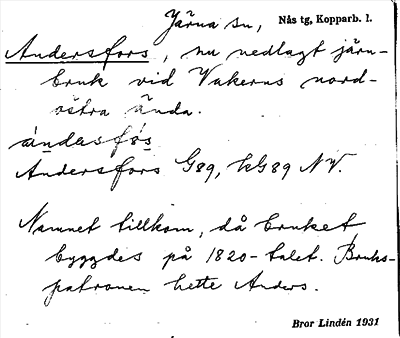 Järna sn, Nås tg, Kopparb. l.
Andersfors, nu nedlagt järn-
bruk vid Vakerns nord-
östra ända.
ándasfòs
Andersfors G89, hG89 NV.
Namnet tillkom, då bruket
byggdes på 1820-talet. Bruks-
patronen hette Anders.
Bror Lindén 1931